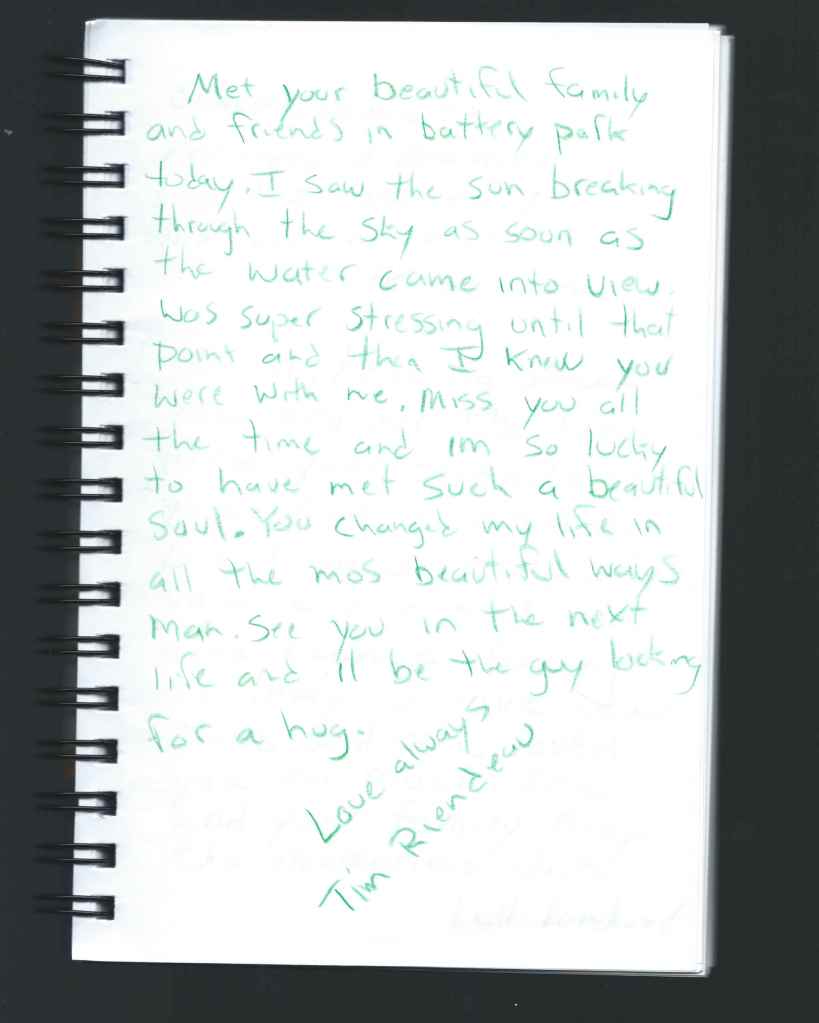 Met your beautiful family
and friends in battery park
today. I saw the sun breaking
through the sky as soon as
the water came into view.
Was super stressing until that
point and then I knew you
were with me. Miss you all
the time and im so lucky
to have met such a beautiful
soul. You changed my life in
all the mos beautiful ways
man. See you in the next
life and ill be the guy looking
for a hug.
Love always
Tim Riendeau